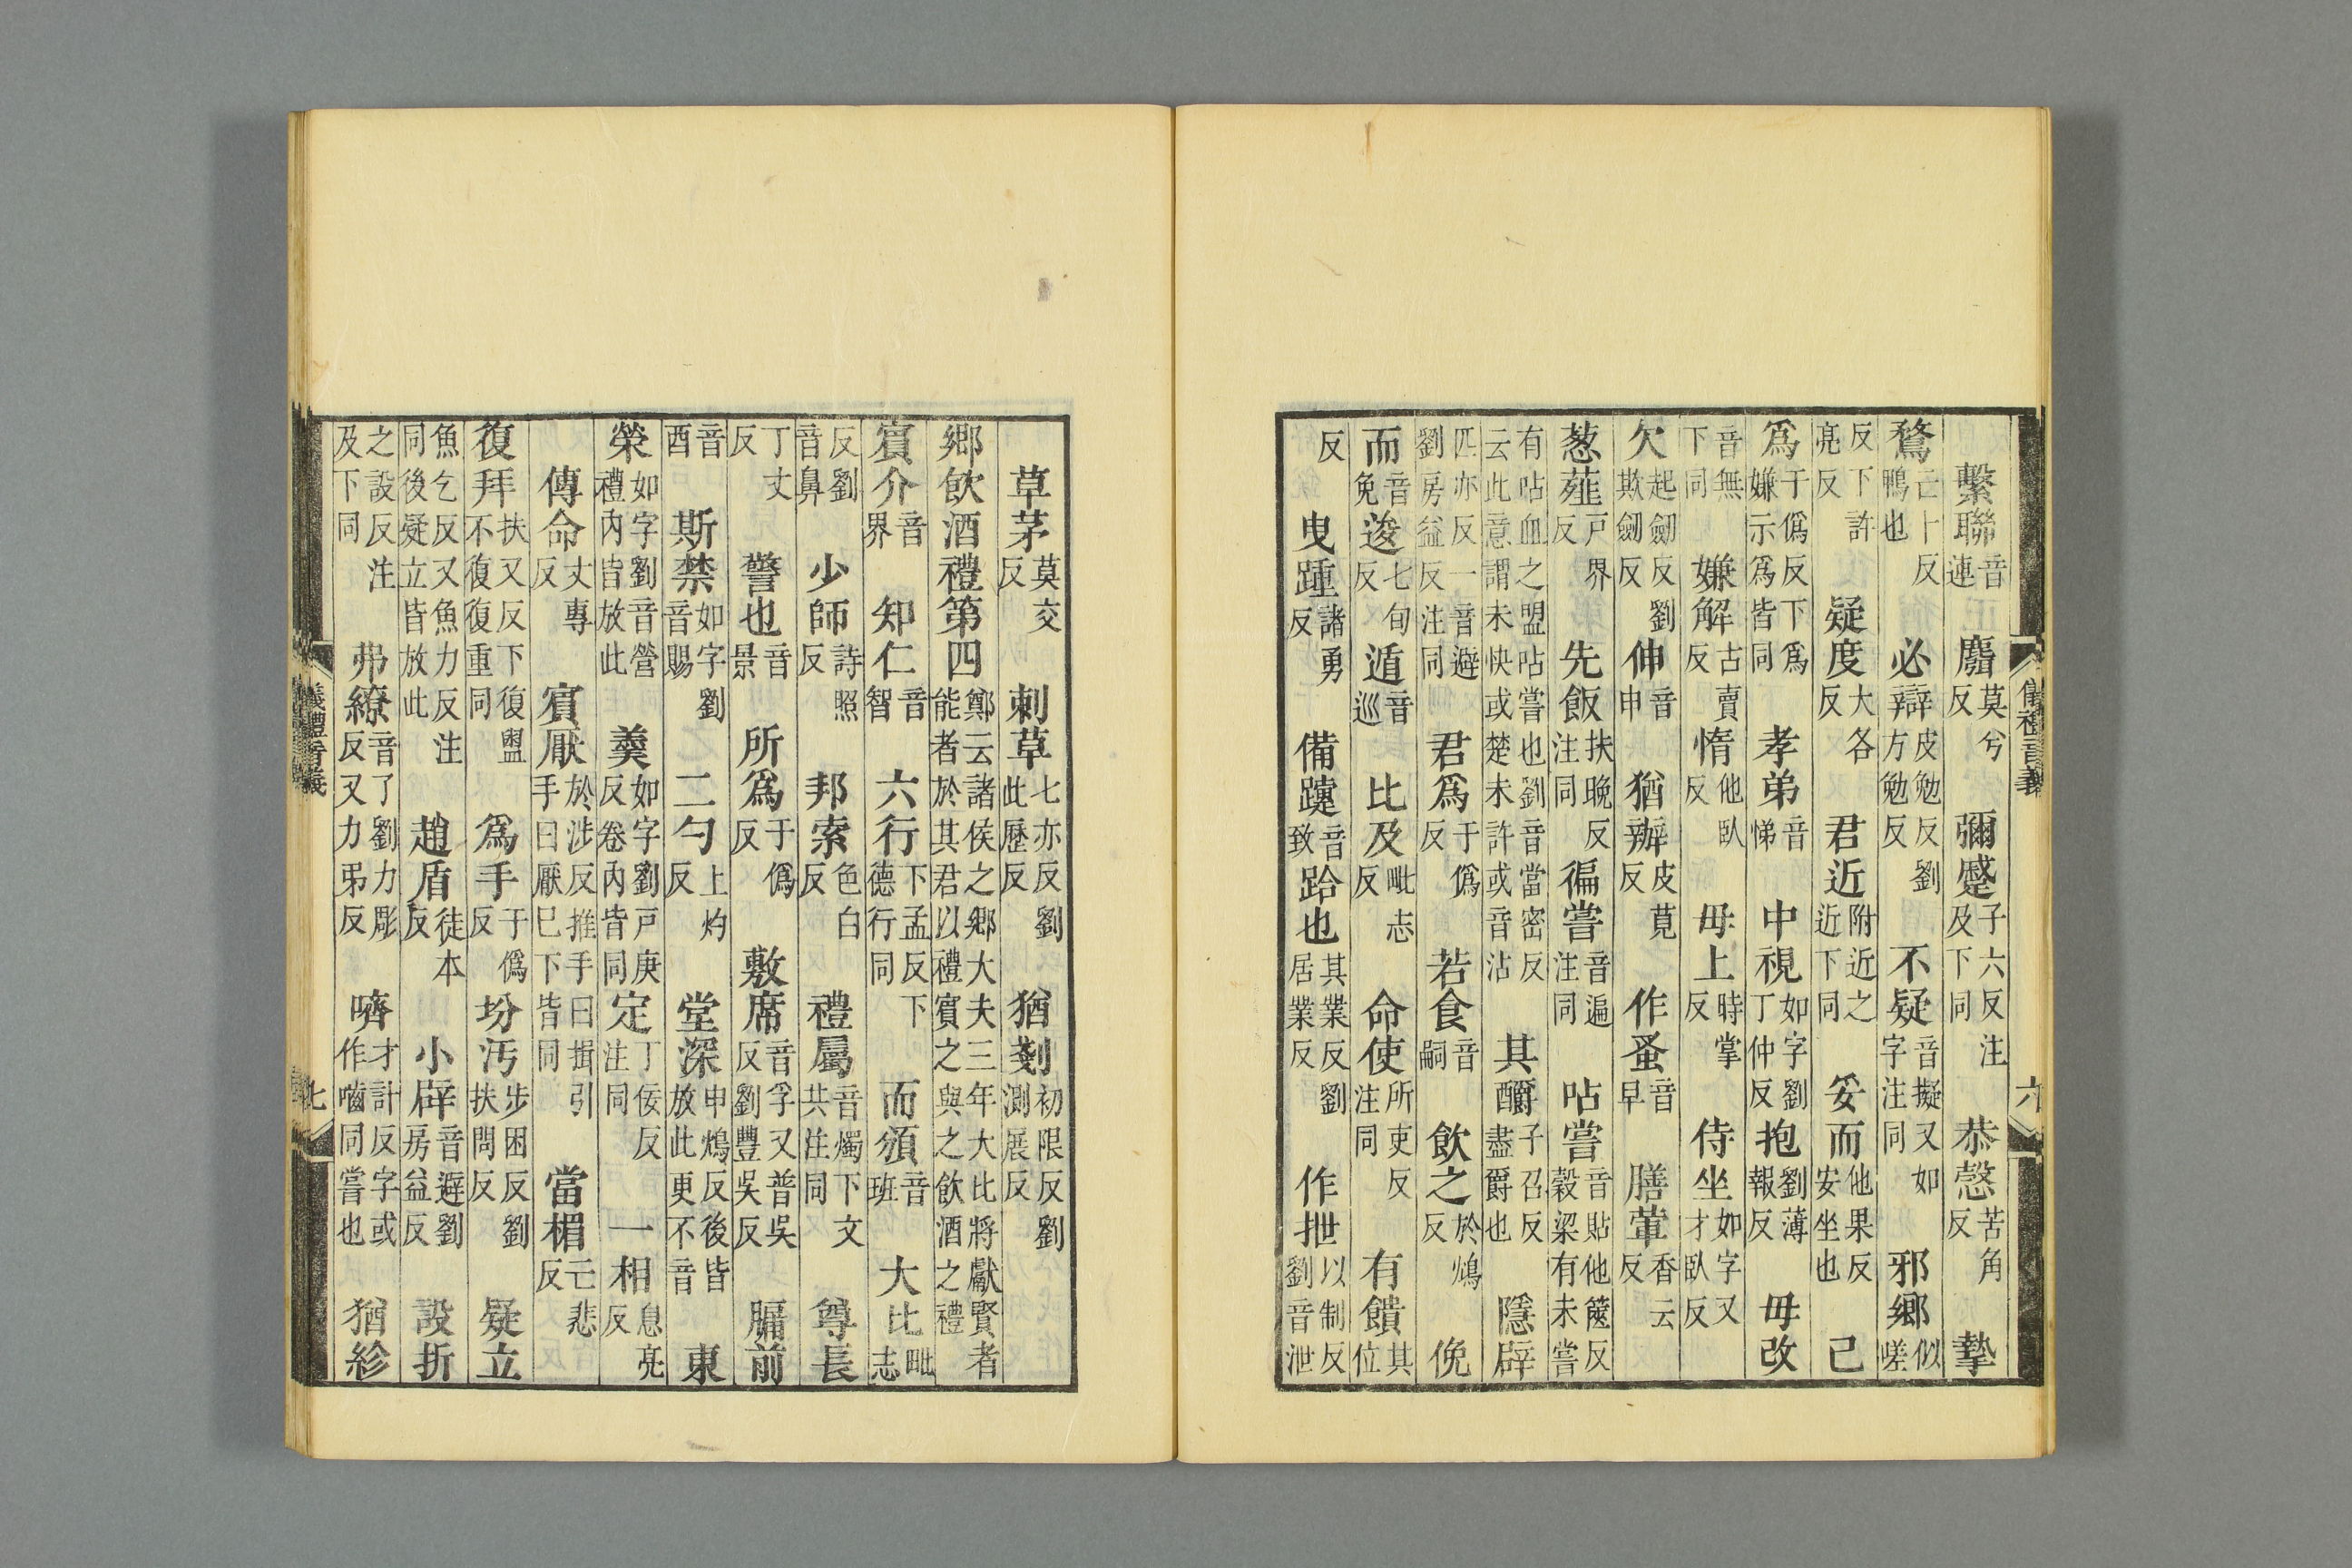 繫聯音連　麛莫兮反　彌蹙子六反注及下同　恭慤苦角反　摯
鶩亡卜反鴨也　必辯皮勉反劉方勉反　不疑音擬又如字注同　邪鄉似嗟
反下許亮反　疑度大各反　君近附近之近下同　妥而他果反安坐也　已
爲于僞反下爲嫌示爲皆同　孝弟音悌　中視如字劉丁仲反　抱劉薄報反　毋改
音無下同　嫌解古賣反　惰他臥反　毋上時掌反　侍坐如字又才臥反
欠起劒反劉欺劒反　伸音申　猶辦皮莧反　作蚤音早　膳葷香云反
葱薤戸界反　先飯扶晚反注同　徧嘗音遍注同　呫嘗音貼他篋反穀梁有未嘗
有呫血之盟呫嘗也劉音當密反云此意謂未快或楚未許或音沾　其釂子召反盡爵也　隱辟
匹亦反一音避劉房益反注同　君爲于僞反　若食音嗣　飲之於鴆反　俛
而音免　逡七旬反　遁音巡　比及毗志反　命使所吏反注同　有饋其位
反　曳踵諸勇反　備躓音致　跲也其業反劉居業反　作抴以制反劉音泄
儀禮音義　六
草茅莫交反　刺草七亦反劉此歷反　猶剗初限反劉測展反
鄉飲酒禮第四鄭云諸侯之鄉大夫三年大比將獻賢者能者於其君以禮賓之與之飲酒之禮
賓介音界　知仁音智　六行下孟反下德行同　而頒音班　大比毗志
反劉音鼻　少師詩照反　邦索色白反　禮屬音燭下文共注同　尊長
丁丈反　警也音景　所爲于僞反　敷席音孚又普吳反劉豐吳反　牖前
音酉　斯禁如字劉音賜　二勺上灼反　堂深申鴆反後皆放此更不音　東
榮如字劉音營禮內皆放此　羹如字劉戸庚反卷內皆同　定丁佞反注同　一相息亮反
傳命丈專反　賓厭於涉反推手曰揖引手曰厭巳下皆同　當楣亡悲反
復拜扶又反下復盥不復復重同　爲手于僞反　坋汚步困反劉扶問反　疑立
魚乞反又魚力反注同後疑立皆放此　趙盾徒本反　小辟音避劉房益反　設折
之設反注及下同　弗繚音了劉力彫反又力弔反　嚌才計反字或作噛同嘗也　猶紾
儀禮音義　七